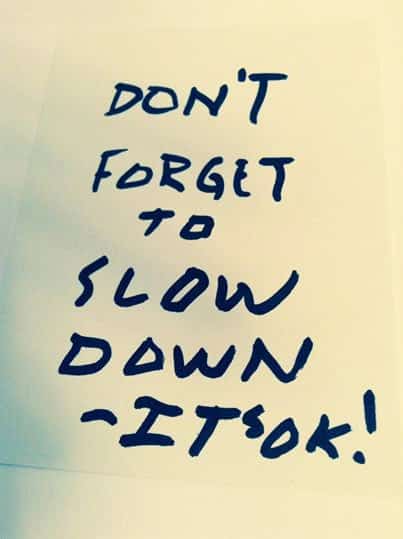 DON'T
FORGET
TO
SLOW
DOWN
-ITSOK!